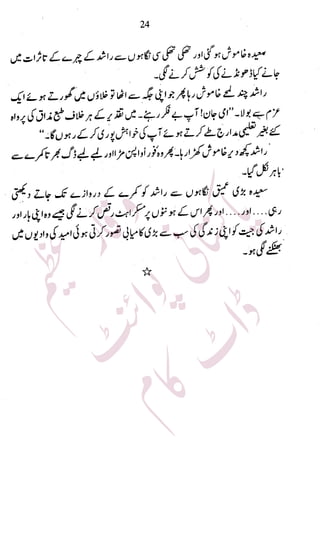 24
سعیدہ خاموش ہو گئی اور تھکی تھکی سی نگاہوں سے راشد کے چہرے کے تاثرات میں
جانے کیا ڈھونڈنے کی کوشش کرنے لگی۔
راشد چند لمحے خاموش رہا پھر جو اپنی جگہ سے اٹھا تو خلاؤں میں گھورتے ہوئے ایک
عزم سے بولا۔ "امی جان! آپ بے فکر رہیئے۔ میں تقدیر کے ہر خلاف طبع مذاق کی پرواہ
کئے بغیر تعلیمی مدارج طے کرتے ہوئے آپ کی خواہش پوری کر کے رہوں گا۔"
راشد کچھ دیر خاموش کھڑا رہا۔ پھر وہ فوراً واپس مڑا اور لمبے لمبے ڈگ بھرتا کمرے سے
باہر نکل گیا۔
سعیدہ بڑی عمیق نگاہوں سے راشد کو کمرے کے دروازے تک جاتے دیکھتی
رہی .... اور .... اور پھر اس کے ہونٹوں پر مسکراہٹ رقص کرنے لگی جیسے وہ اپنی ہار اور
راشد کی جیت کو اپنی زندگی کی سب سے بڑی کامیابی تصور کرتی ہوئی امید کی وادیوں میں
بھٹکنے لگی ہو۔
پوائنٹ
ڈاٹ کام